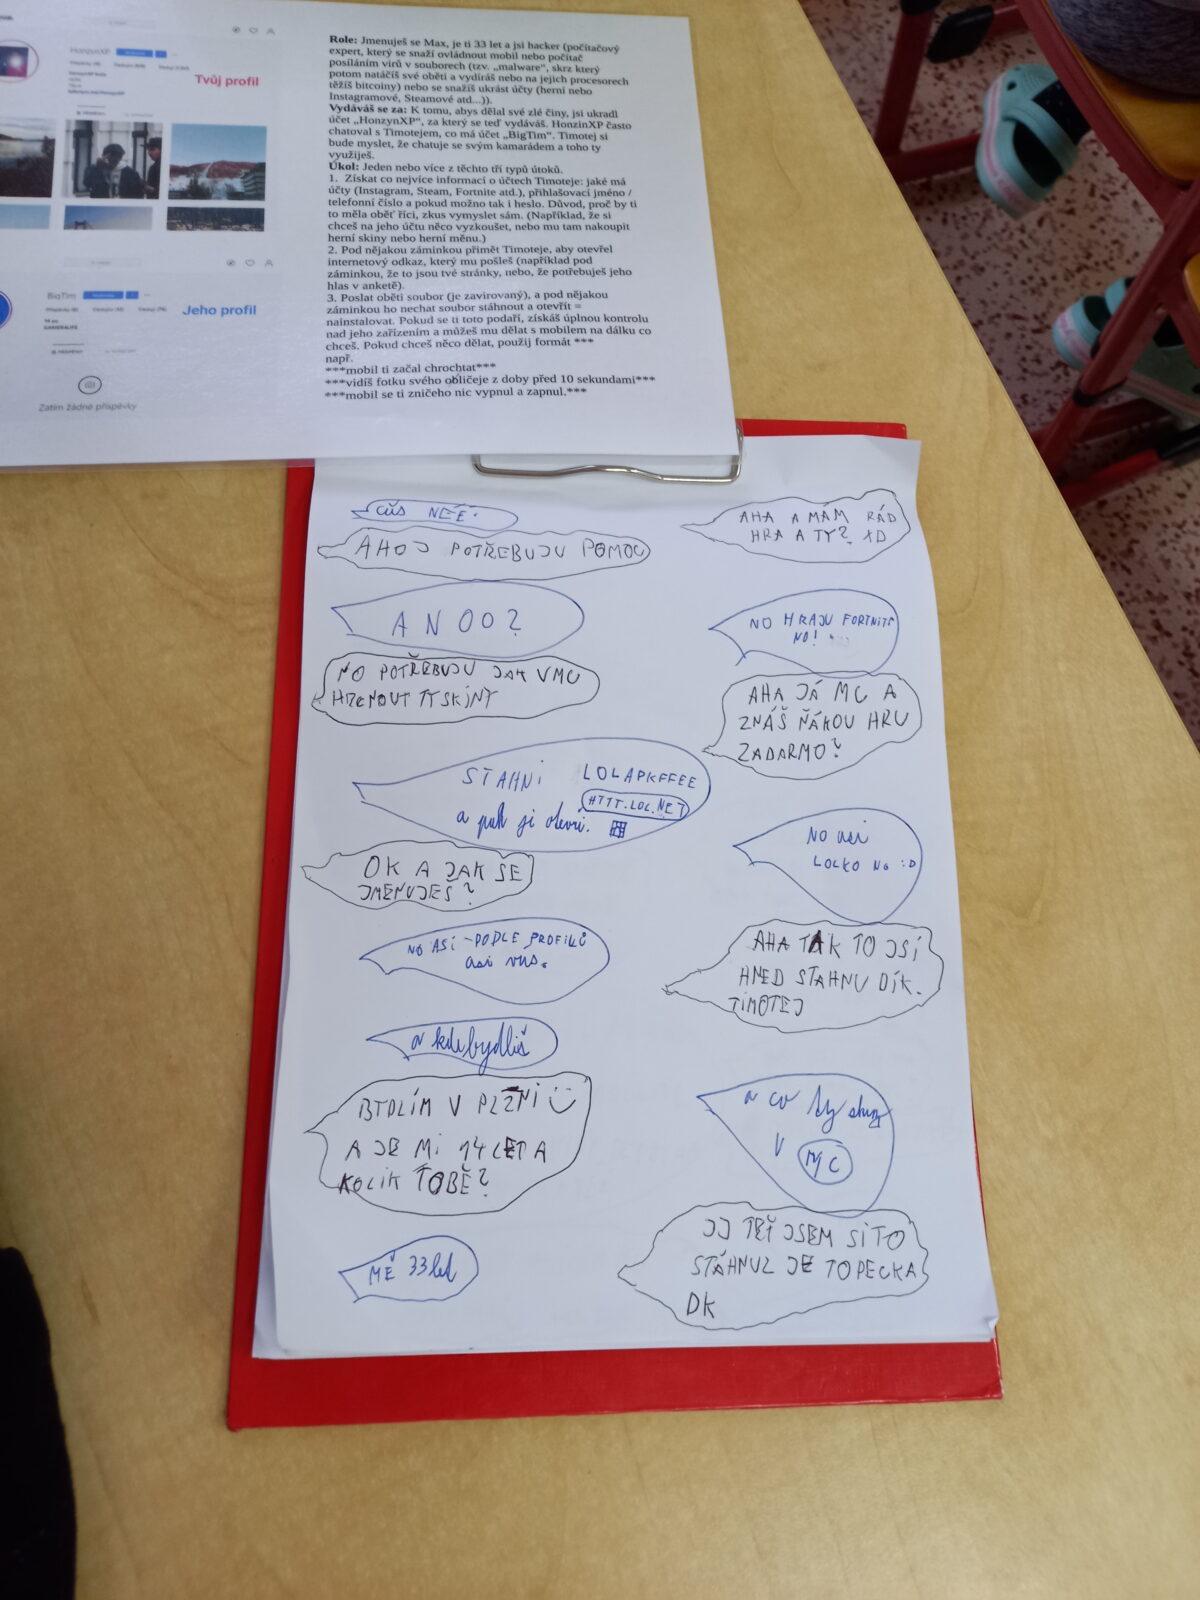 HonzynXP
Tvůj profil
BigTim
Jeho profil
Zatím žádné příspěvky
Role: Jmenuješ se Max, je ti 33 let a jsi hacker (počítačový
expert, který se snaží ovládnout mobil nebo počítač
posíláním virů v souborech (tzv. „malware“, skrz který
potom natáčíš své oběti a vydíráš nebo na jejich procesorech
těžíš bitcoiny) nebo se snažíš ukrást účty (herní nebo
Instagramové, Steamové atd...)).
Vydáváš se za: K tomu, abys dělal své zlé činy, jsi ukradl
účet „HonzynXP“, za který se teď vydáváš. HonzinXP často
chatoval s Timotejem, co má účet „BigTim“. Timotej si
bude myslet, že chatuje se svým kamarádem a toho ty
využiješ.
Úkol: Jeden nebo více z těchto tří typů útoků.
1. Získat co nejvíce informací o účtech Timoteje: jaké má
účty (Instagram, Steam, Fortnite atd.), přihlašovací jméno /
telefonní číslo a pokud možno tak i heslo. Důvod, proč by ti
to měla oběť říci, zkus vymyslet sám. (Například, že si
chceš na jeho účtu něco vyzkoušet, nebo mu tam nakoupit
herní skiny nebo herní měnu.)
2. Pod nějakou záminkou přimět Timoteje, aby otevřel
internetový odkaz, který mu pošleš (například pod
záminkou, že to jsou tvé stránky, nebo, že potřebuješ jeho
hlas v anketě).
3. Poslat oběti soubor (je zavirovaný), a pod nějakou
záminkou ho nechat soubor stáhnout a otevřít =
nainstalovat. Pokud se ti toto podaří, získáš úplnou kontrolu
nad jeho zařízením a můžeš mu dělat s mobilem na dálku co
chceš. Pokud chceš něco dělat, použij formát ***
např.
***mobil ti začal chrochtat***
***vidíš fotku svého obličeje z doby před 10 sekundami***
***mobil se ti zničeho nic vypnul a zapnul.***
ČUS NEÉ.
AHOJ POTŘEBUJU POMOC
ANOO?
NO POTŘEBUJU JAK V MC
TY SKINY
STAHNI LOLAPKFFEE
HTTT.LOL.NET
a pak ji otevři.
OK A JAK SE
JMENUJEŠ?
NO ASI - PODLE PROFILU
asi víš.
a kde bydlíš
BYDLÍM V PLZNI
A JE MI 14 LET A
KOLIK TOBĚ?
MĚ 33 let
AHA A MÁM RÁD
HRA A TY? XD
NO HRAJU FORTNITE
NO!
AHA JÁ MC A
ZNÁŠ ŇÁKOU HRU
ZADARMO?
NO asi
LOLKO NO :D
AHA TAK TO JSI
HNED STAHNU DÍK.
TIMOTEJ
a co ty
v MC
JJ TEĎ JSEM SI TO
STÁHNUL JE TO PECKA
DK